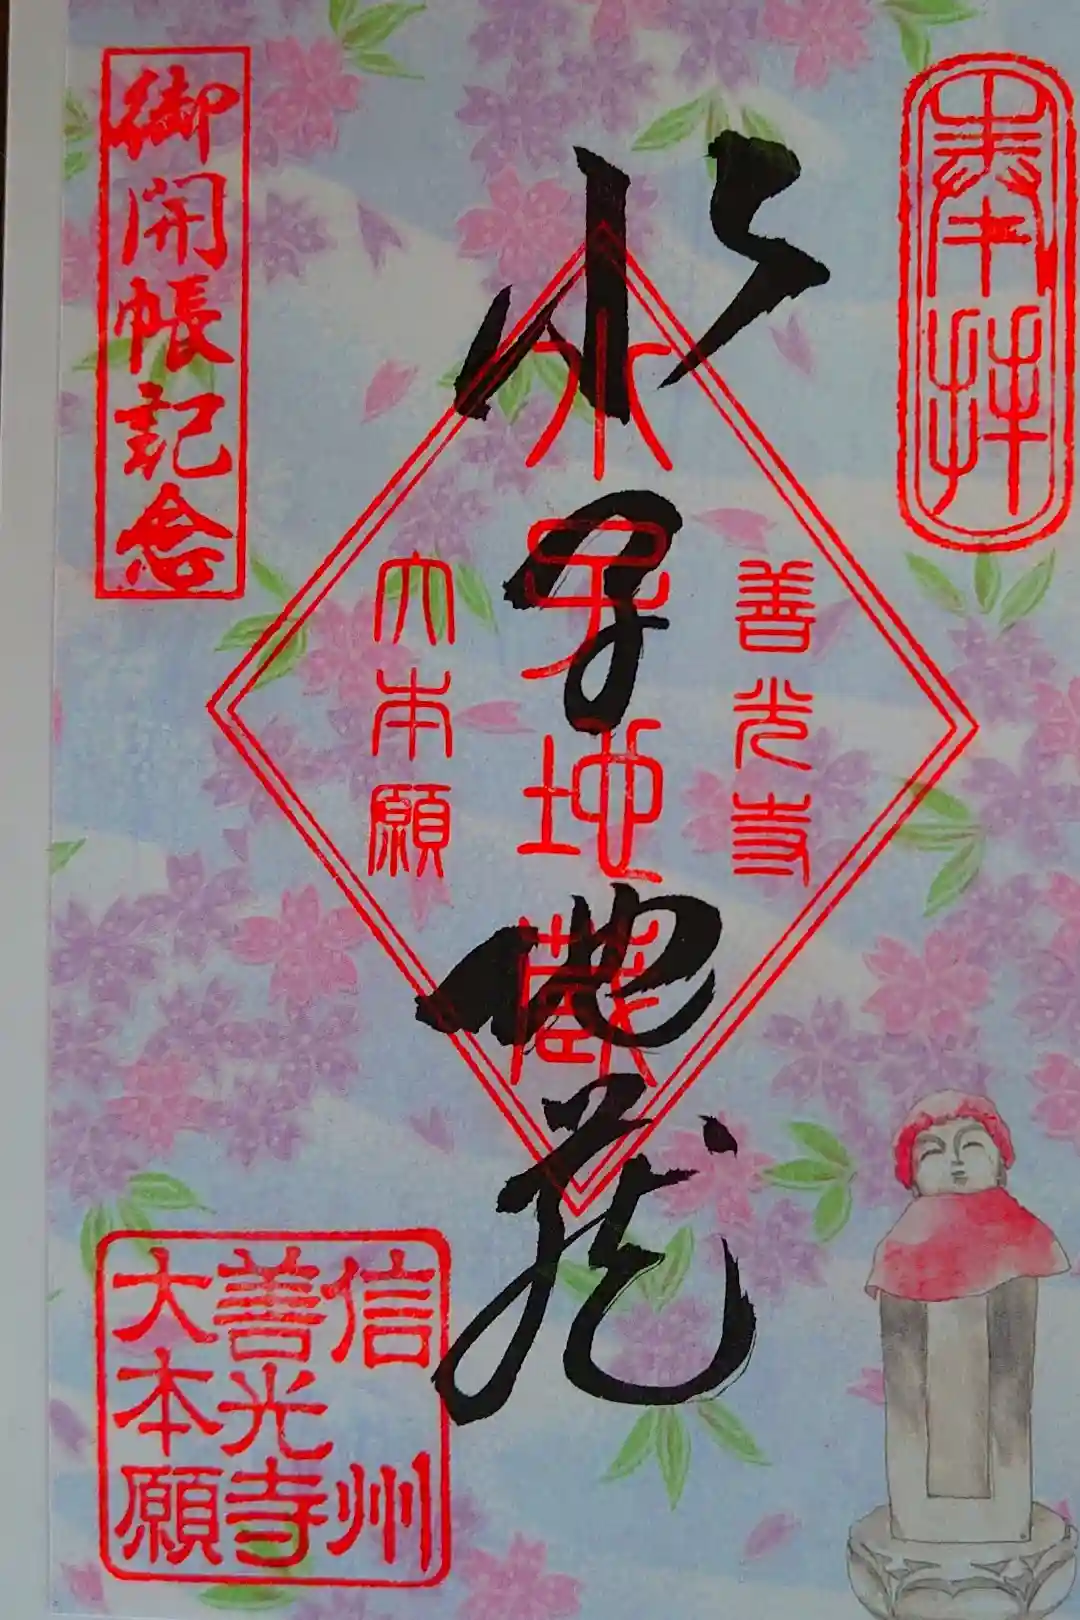 奉拝
善光寺
水子地蔵
水子地蔵
大本願
御開帳記念
信州
善光寺
大本願